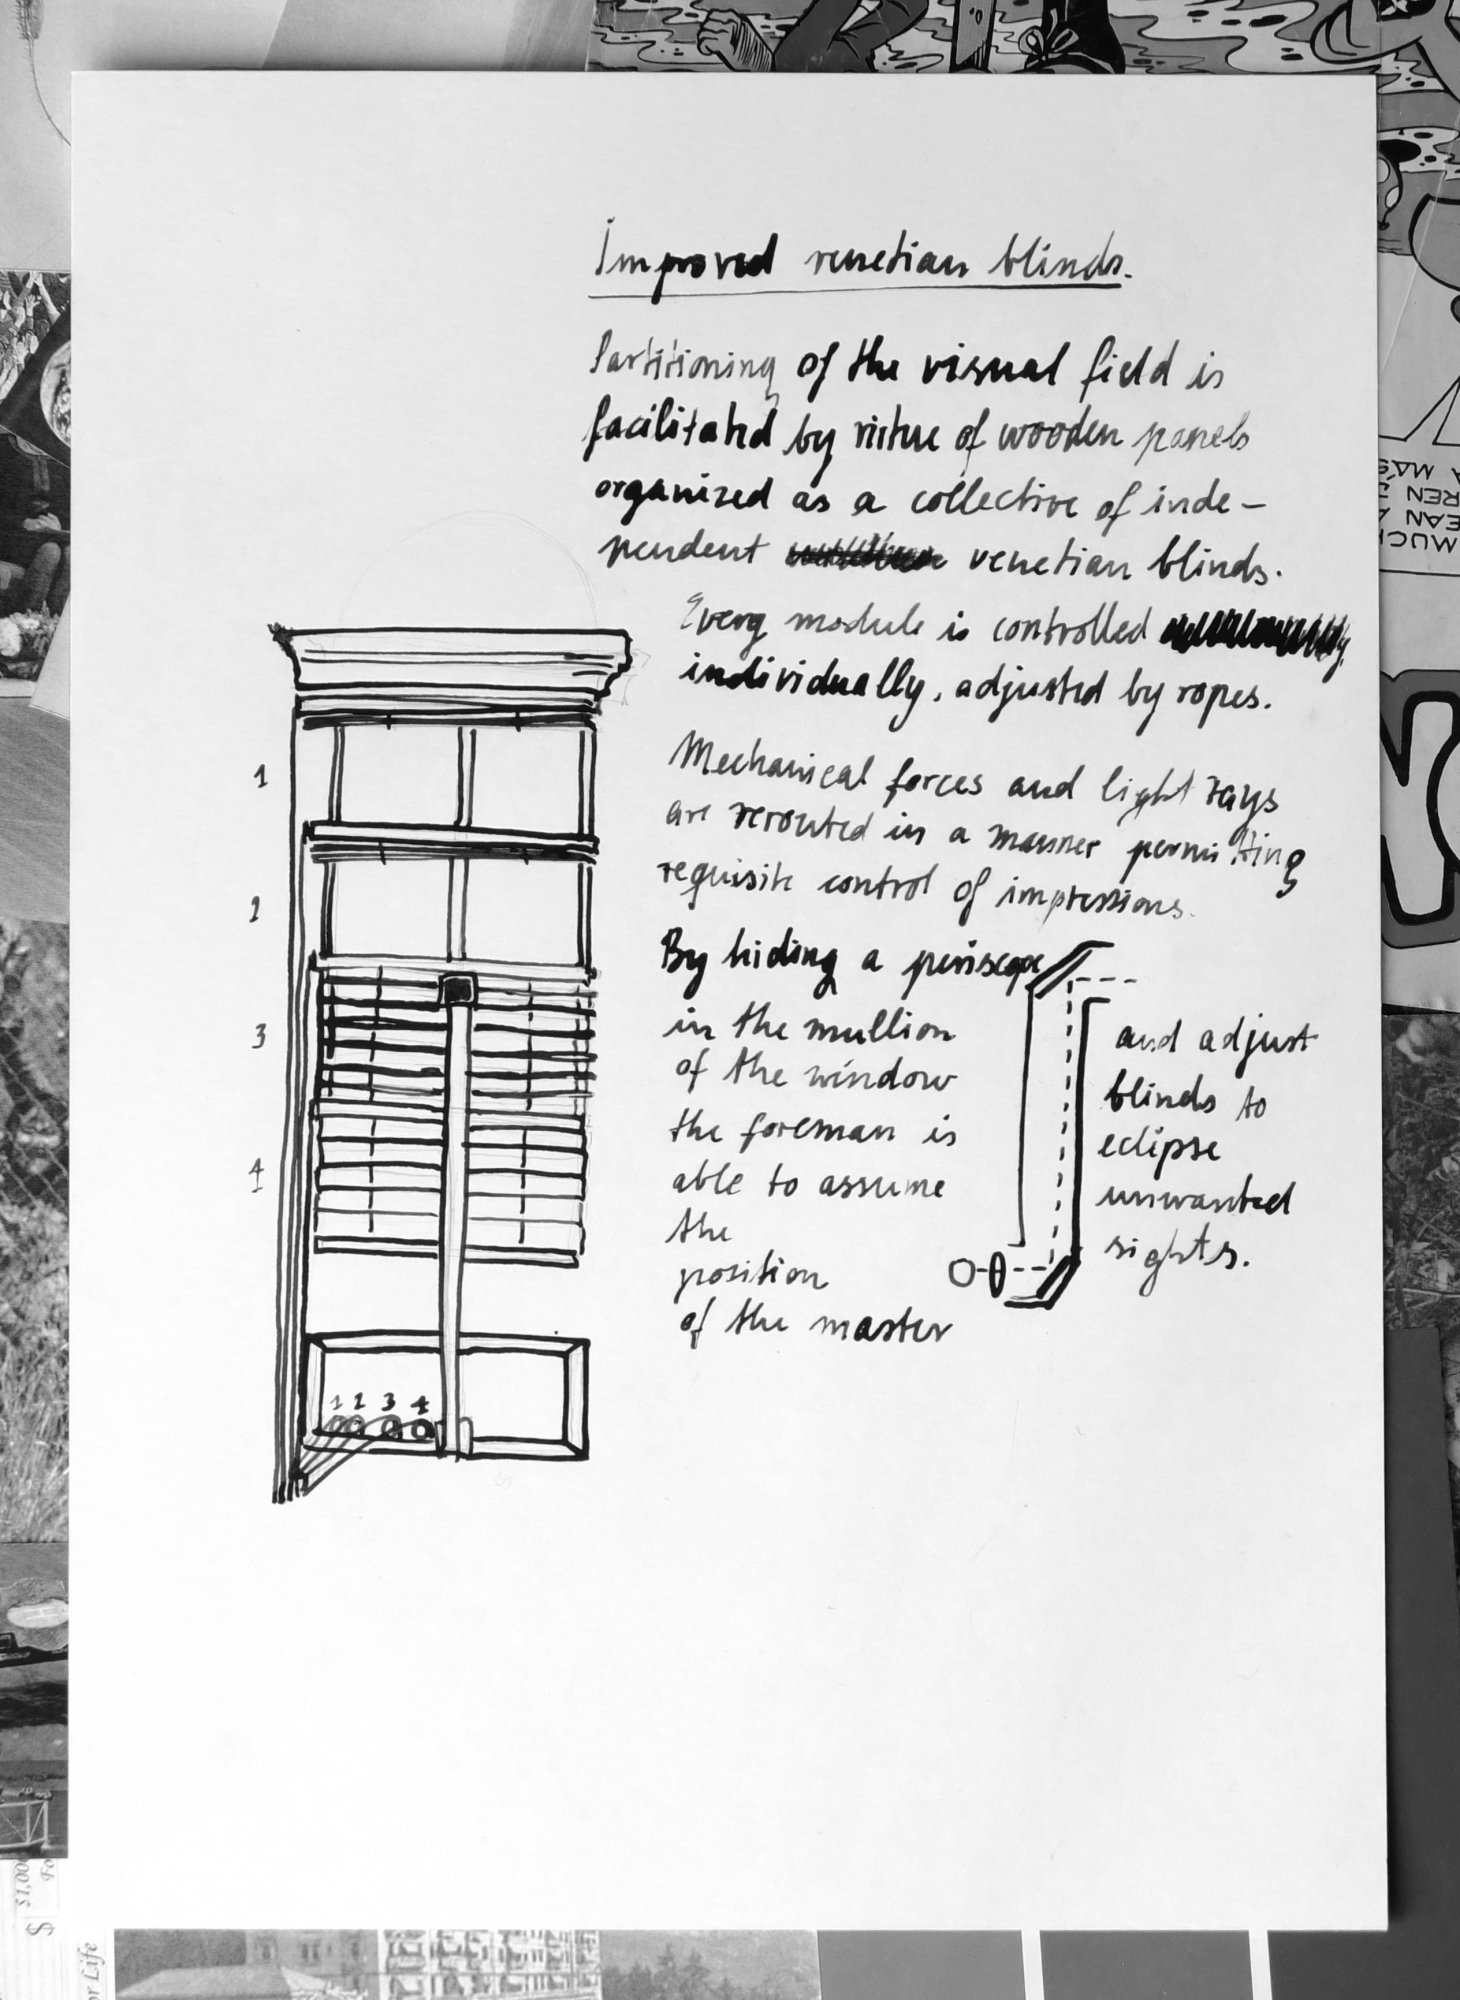 Improved venetian blinds.
Partitioning of the visual field is
facilitated by virtue of wooden panels
organized as a collective of inde-
pendent venetian blinds.
Every module is controlled
individually, adjusted by ropes.
Mechanical forces and light rays
are rerouted in a manner permitting
requisite control of impressions.
By hiding a periscope
in the mullion
of the window
the foreman is
able to assume
the
position
of the master
and adjust
blinds to
eclipse
unwanted
sights.
1
2
3
4
1 2 3 4
MUCH
EAN
REN
A MA'S
$1,00
Fo
$
or Life